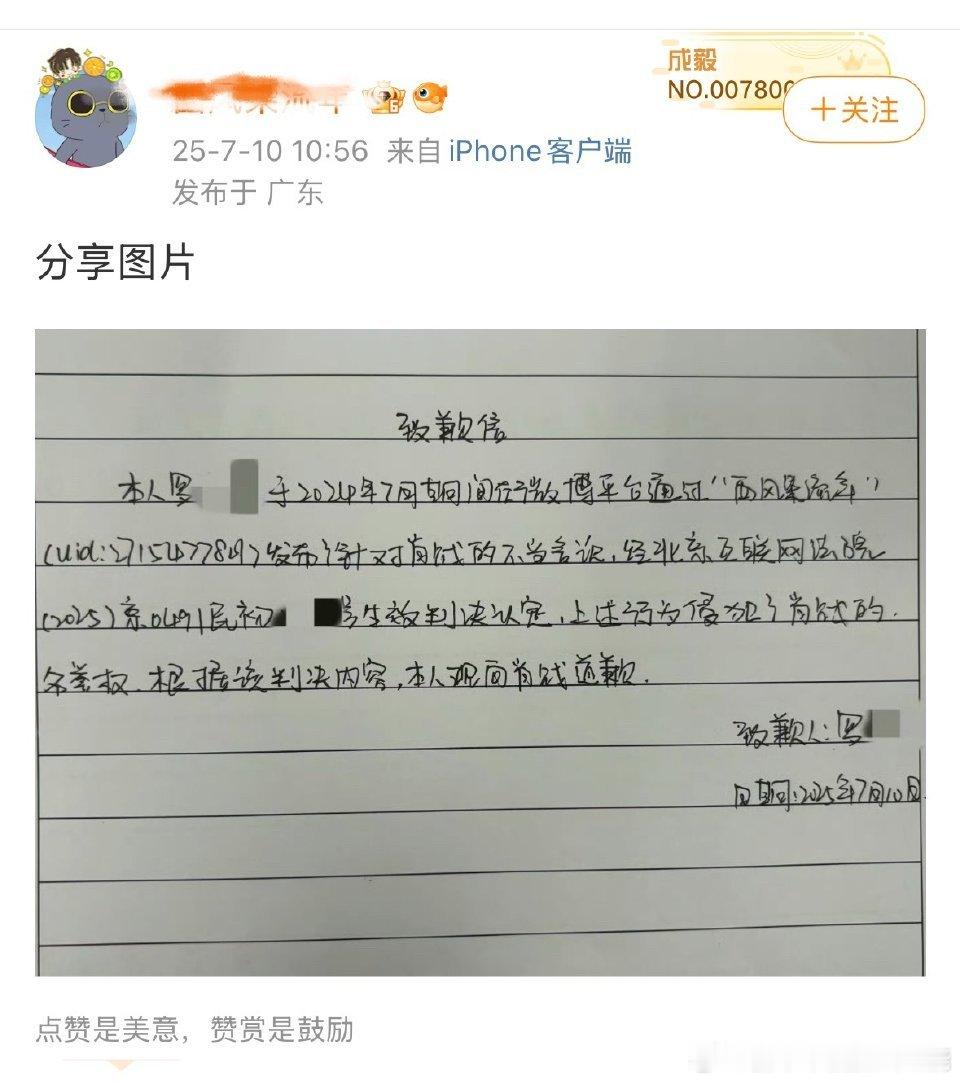 成毅
NO.007800
+关注
25-7-10 10:56 来自 iPhone客户端
发布于 广东
分享图片
致歉信
本人罗 于2024年7月期间在微博平台通过“西风乘流年”
(uid:2715477849)发布了针对肖战的不当言论,经北京互联网法院
(2025)京0491民初 号生效判决认定,上述行为侵犯了肖战的
名誉权.根据该判决内容,本人现向肖战道歉.
致歉人:罗
日期:2025年7月10日.
点赞是美意，赞赏是鼓励